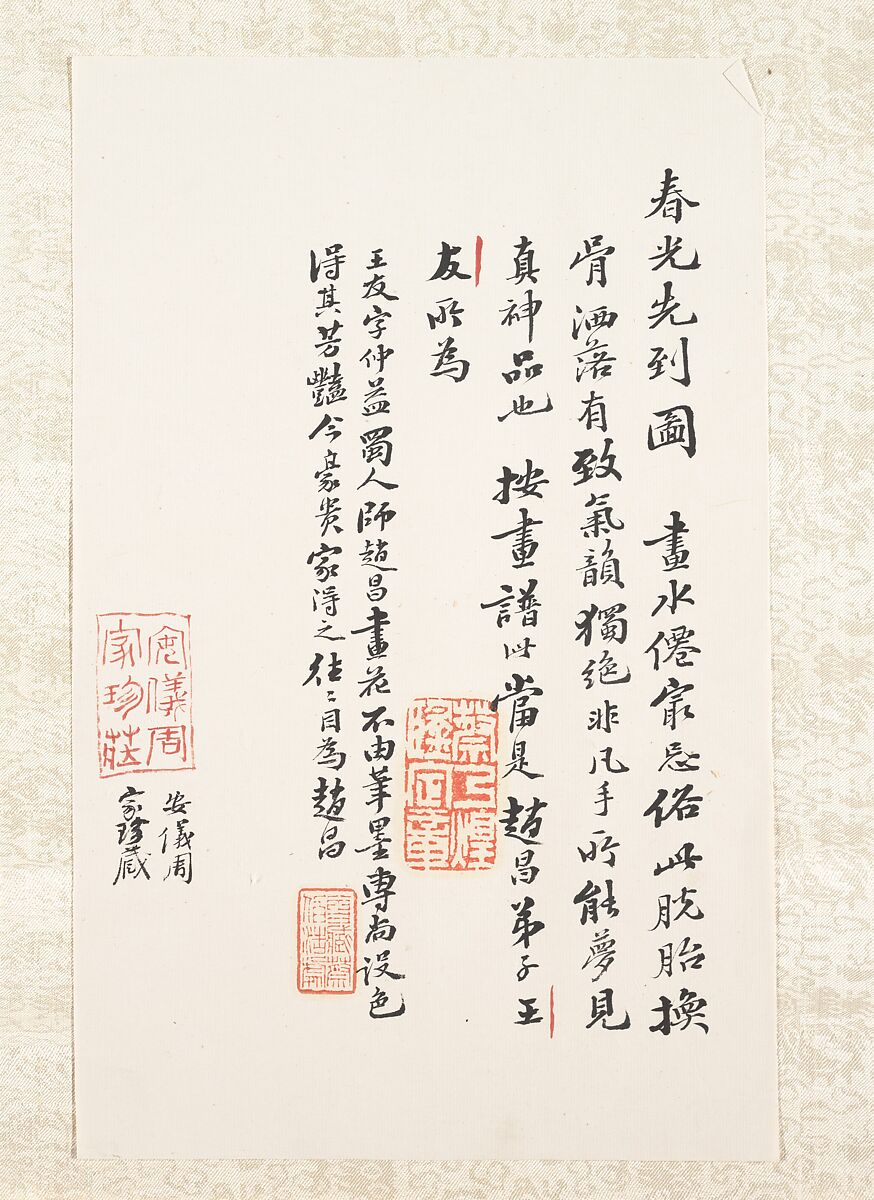 春光先到圖 畫水僊㝡忌俗此脫胎換
骨洒落有致氣韻獨絕非凡手所能夢見
真神品也 按畫譜此當是趙昌弟子王
友所為
王友字仲益蜀人師趙昌畫花不由筆墨專尚設色
得其芳豔今豪貴家得之往〻目為趙昌
安儀周
家珍藏
安儀周
家珍藏